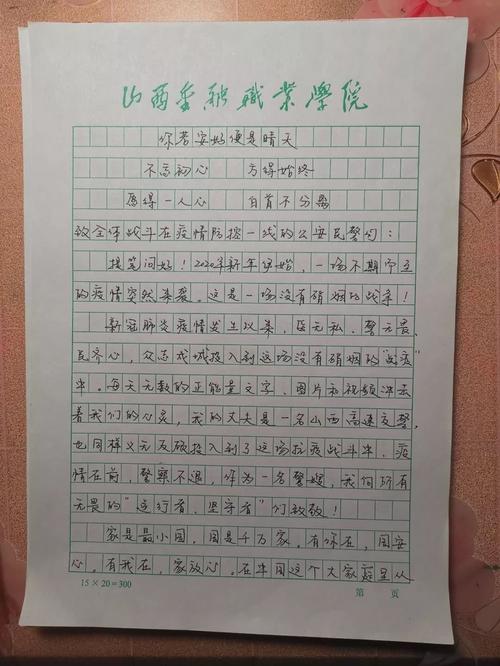 山西金融职业学院
你若安好便是晴天
不忘初心 方得始终
愿得一人心 白首不分离
致全体战斗在疫情防控一线的公安民警们：
提笔问好！2020年新年伊始，一场不期而至
的疫情突然来袭。这是一场没有硝烟的战争！
新冠肺炎疫情发生以来，医无私、警无畏、
民齐心，众志成城投入到这场没有硝烟的“战疫”
中。每天无数的正能量文字、图片和视频冲击
着我们的心灵，我的丈夫是一名山西高速交警，
也同样义无反顾投入到了这场抗疫战斗中。疫
情在前，警察不退，作为一名警嫂，我向所有
无畏的“逆行者、坚守者”们致敬！
家是最小国，国是千万家。有你在，国安
心。有我在，家放心。在中国这个大家庭里从
15×20=300 第 页